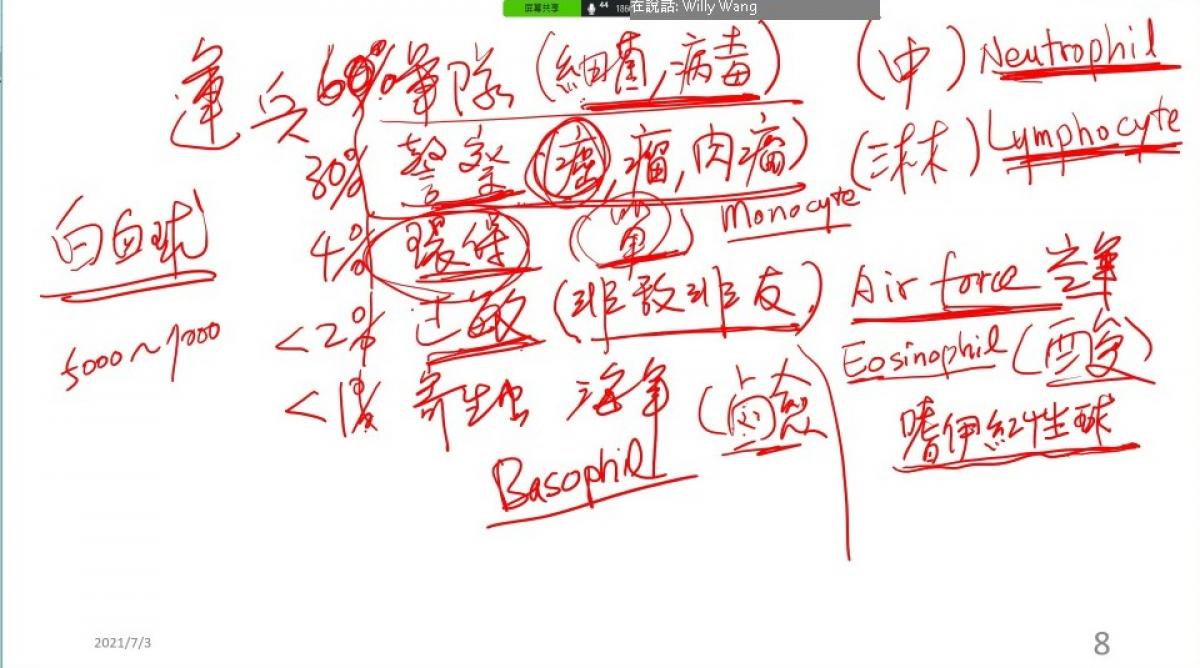 屏幕共享 44 在說話: Willy Wang
運兵 60% 軍隊 (細菌,病毒) (中) Neutrophil
30% 警察 (癌,瘤,肉瘤) (淋) Lymphocyte
4% 環保 (單) Monocyte
<2% 过敏 (非敌非友) Air force 空軍
白血球
5000~9000
Eosinophil (酸)
<1% 寄生虫 海軍 (鹵鹼
嗜伊紅性球
Basophil
2021/7/3
8